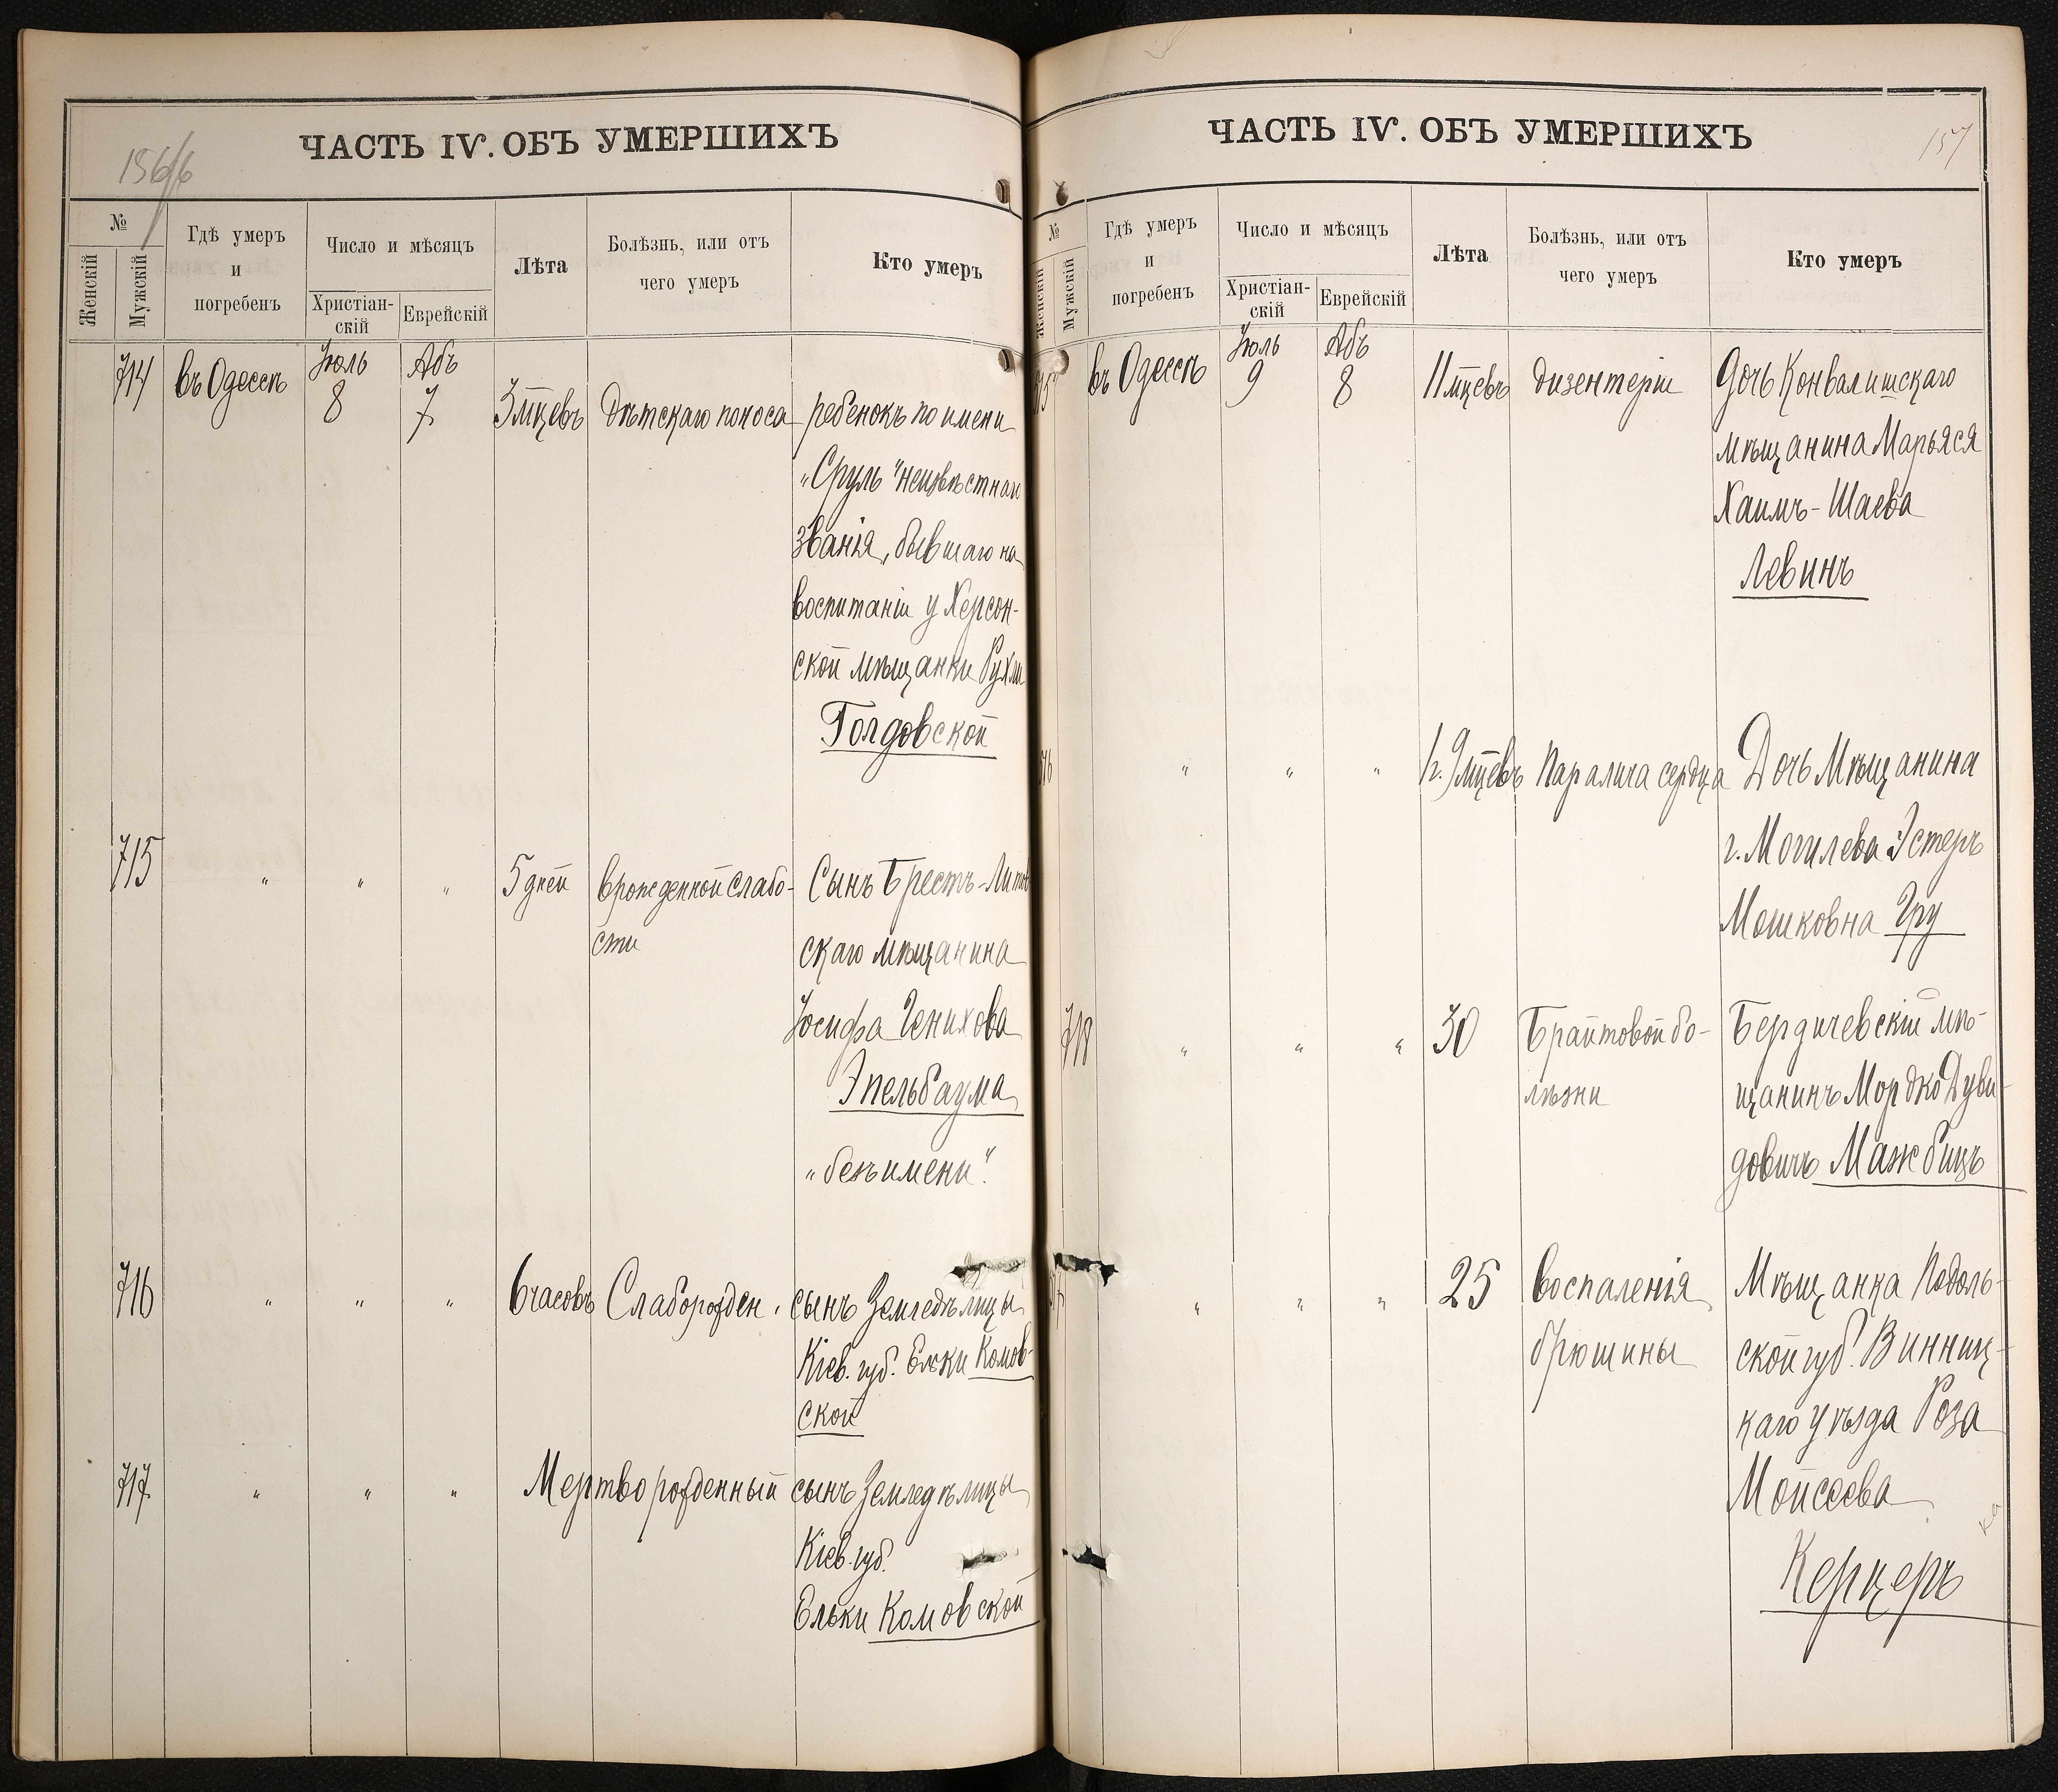 ЧАСТЬ IV. ОБЪ УМЕРШИХЪ
№
Женскій
Мужскій
Гдѣ умеръ
и
погребенъ
Число и мѣсяцъ
Христіан-
скій
Еврейскій
Лѣта
Болѣзнь, или отъ
чего умеръ
Кто умеръ
714
въ Одессѣ
Іюль
8
Абъ
7
3 мцевъ
дѣтскаго поноса
ребенокъ по имени
„Сруль" неизвѣстнаго
званія, бывшаго на
воспитаніи у Херсон-
ской мѣщанки Рухли
Голдовской
715
"
"
"
5 дней
врожденной слабо-
сти
Сынъ Брестъ-Литов
скаго мѣщанина
Іосифа Генихова
Эпельбаума
„безъ имени".
716
"
"
"
6 часовъ
Слаборожден.
сынъ Земледѣлицы
Кіев. губ. Ельки Комов-
ской
717
"
"
"
Мертворожденный
сынъ Земледѣлицы
Кіев. губ.
Ельки Комовской
ЧАСТЬ IV. ОБЪ УМЕРШИХЪ
157
№
Женскій
Мужскій
Гдѣ умеръ
и
погребенъ
Число и мѣсяцъ
Христіан-
скій
Еврейскій
Лѣта
Болѣзнь, или отъ
чего умеръ
Кто умеръ
въ Одессѣ
Іюль
9
Абъ
8
11 мцевъ
дизентеріи
Дочь Конвалишскаго
мѣщанина Марьяся
Хаимъ-Шаева
Левинъ
"
"
"
1 г. 9 мцевъ
Паралича сердца
Дочь Мѣщанина
г. Могилева Эстеръ
Мошковна Гру
718
"
"
"
30
Брайтовой бо-
лѣзни
Бердичевскій мѣ-
щанинъ Мордко Дуви-
довичъ Мажбицъ
"
"
"
25
воспаленія
брюшины
Мѣщанка Подоль-
ской губ. Винниц-
каго уѣзда Роза
Мойсеева
Керцеръ